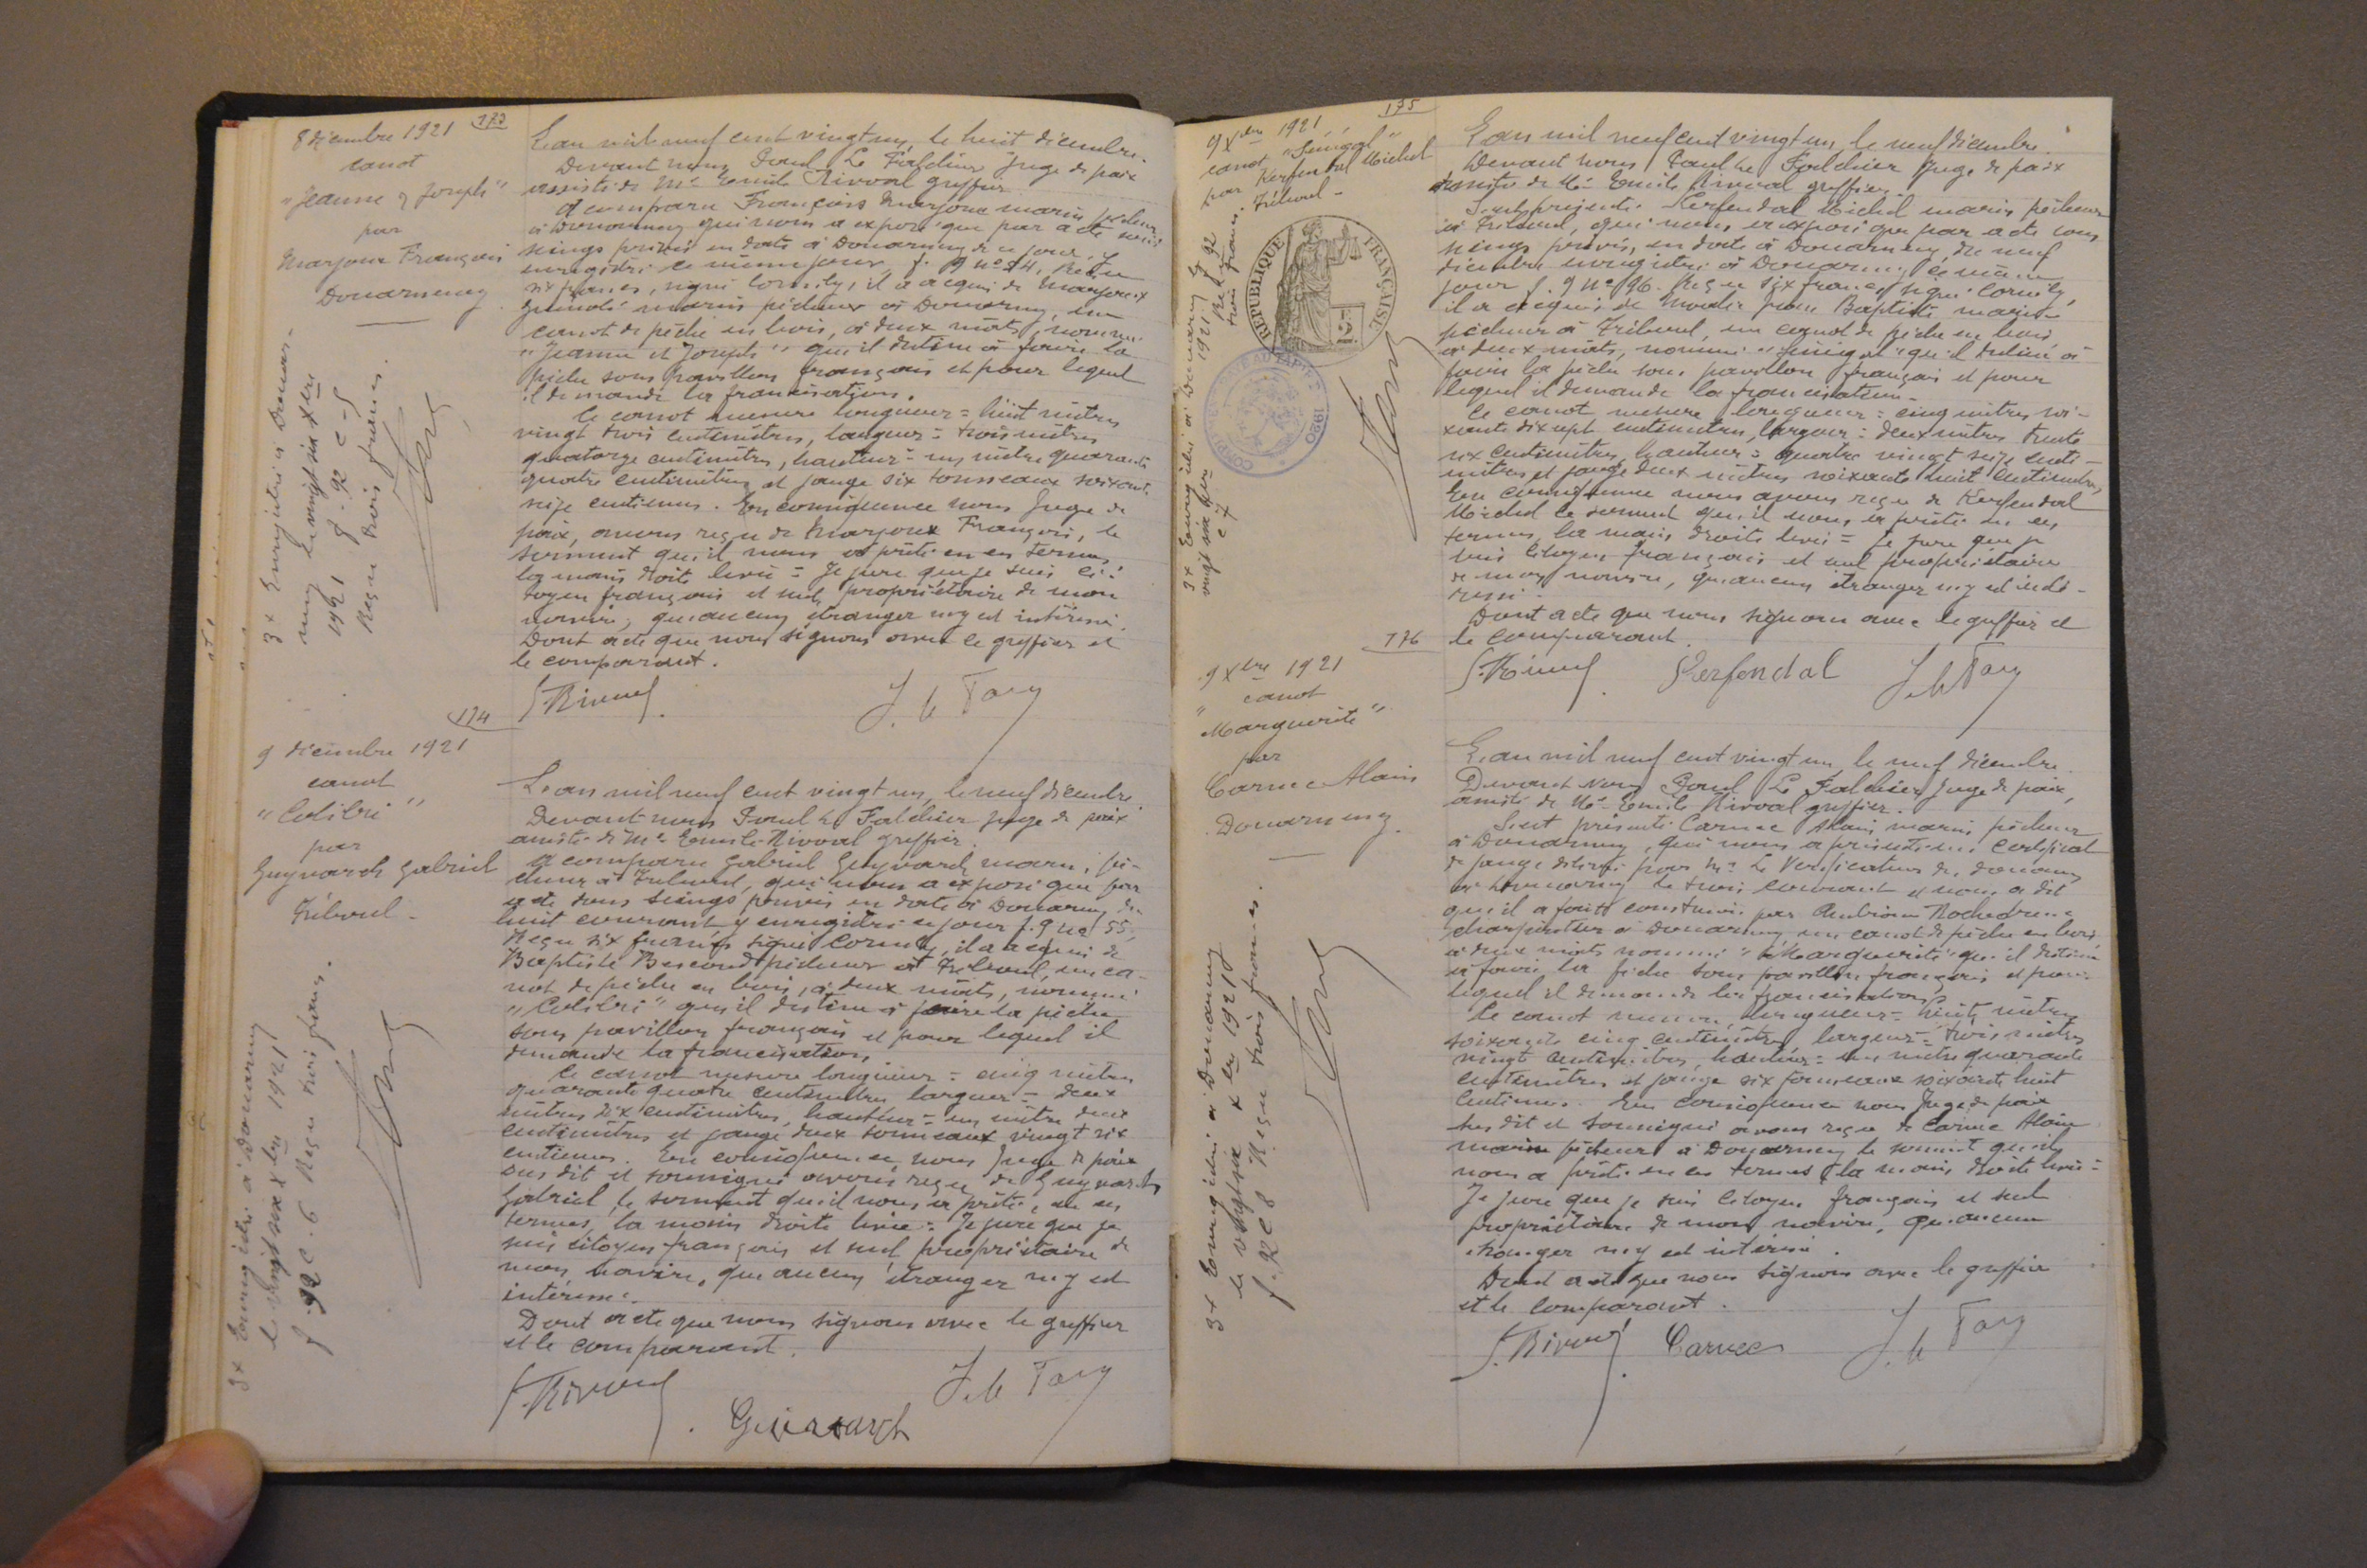 173
8 décembre 1921
canot
"Jeanne & Joseph"
par
Marjoux François
Douarnenez
L'an mil neuf cent vingt un, le huit décembre.
Devant nous Paul Le Falchier Juge de paix
assisté de Me Emile Rivoal greffier
A comparu François Marjoux marin pêcheur
à Douarnenez qui nous a exposé que par acte sous
seings privés en date à Douarnenez de ce jour, y
enregistré le même jour, f. 9 no 54, Reçu
six francs, signé Cornily, il a acquis de Marjoux
marin pêcheur à Douarnenez, un
canot de pêche en bois, à deux mâts, nommé
"Jeanne et Joseph" qu'il destine à faire la
pêche sous pavillon français et pour lequel
il demande la francisation.
Le canot mesure longueur = huit mètres
vingt trois centimètres, largeur = trois mètres
quatorze centimètres, hauteur = un mètre quarante
quatre centimètres et jauge six tonneaux soixante
seize centièmes. En conséquence nous Juge de
paix, avons reçu de Marjoux François, le
serment qu'il nous a prêté en ces termes
la main droite levée = Je jure que je suis ci-
toyen français et seul propriétaire de mon
navire, qu'aucun étranger n'y est intéressé.
Dont acte que nous signons avec le greffier et
le comparant.
E. Rivoal
3+ Enregistré à Douar-
nenez le vingt six Xbre
1921 f. 92 c. 5
Reçu trois francs.
174
9 décembre 1921
canot
"Colibri"
par
Guyvarch Gabriel
Tréboul -
L'an mil neuf cent vingt un, le neuf décembre.
Devant nous Paul Le Falchier Juge de paix
assisté de Me Emile Rivoal greffier.
A comparu Gabriel Guyvarch marin, pê-
cheur à Tréboul, qui nous a exposé que par
acte sous seings privés en date à Douarnenez du
huit courant y enregistré ce jour f. 9 no 55,
Reçu six francs signé Cornily, il a acquis de
Baptiste Bescond pêcheur à Tréboul, un ca-
not de pêche en bois, à deux mâts, nommé
"Colibri" qu'il destine à faire la pêche
sous pavillon français et pour lequel il
demande la francisation.
Le canot mesure longueur = cinq mètres
quarante quatre centimètres largeur = deux
mètres dix centimètres, hauteur = un mètre deux
centimètres et jauge deux tonneaux vingt six
centièmes. En conséquence, nous Juge de paix
sus dit et soussigné avons reçu de Guyvarch
Gabriel, le serment qu'il nous a prêté, en ces
termes, la main droite levée = Je jure que je
suis citoyen français et seul propriétaire de
mon navire, que aucun étranger n'y est
intéressé.
Dont acte que nous signons avec le greffier
et le comparant.
E. Rivoal
Guivarch
3+ Enregistré à Douarnenez
le vingt six Xbre 1921
f 92 c. 6 Reçu trois francs.
175
9 Xbre 1921
canot "Sénégal"
par Kerfendal Michel
Tréboul -
REPUBLIQUE FRANÇAISE
1920
L'an mil neuf cent vingt un, le neuf décembre.
Devant nous Paul Le Falchier Juge de paix
assisté de Me Emile Rivoal greffier.
S'est présenté Kerfendal Michel marin pêcheur
à Tréboul, qui nous a exposé que par acte sous
seings privés, en date à Douarnenez, du neuf
décembre enregistré à Douarnenez le même
jour f. 9 no 96. Reçu six francs, signé Cornily,
il a acquis de Jean Baptiste marin
pêcheur à Tréboul, un canot de pêche en bois
à deux mâts, nommé "Sénégal" qu'il destine à
faire la pêche sous pavillon français et pour
lequel il demande la francisation.
Le canot mesure longueur : cinq mètres soi-
xante dix sept centimètres, largeur : deux mètres trente
six centimètres, hauteur = quatre vingt seize centi-
mètres et jauge deux mètres soixante huit centimètres,
En conséquence nous avons reçu de Kerfendal
Michel le serment qu'il nous a prêté en ces
termes, la main droite levée = Je jure que je
suis citoyen français et seul propriétaire
de mon navire, qu'aucun étranger n'y est inté-
ressé.
Dont acte que nous signons avec le greffier et
le comparant.
E. Rivoal Kerfendal
3+ Enregistré à Douarnenez le
vingt six Xbre 1921 f 92
c 7 Reçu trois francs.
176
9 Xbre 1921
canot
"Marguerite"
par
Carnec Alain
Douarnenez.
L'an mil neuf cent vingt un, le neuf décembre.
Devant nous Paul Le Falchier Juge de paix,
assisté de Me Emile Rivoal greffier.
S'est présenté Carnec Alain marin pêcheur
à Douarnenez, qui nous a présenté un certificat
de jauge délivré par Mr Le Vérificateur des douanes
à Douarnenez le trois courant et nous a dit
qu'il a fait construire par
charpentier à Douarnenez un canot de pêche en bois
à deux mâts nommé "Marguerite" qu'il destine
à faire la pêche sous pavillon français et pour
lequel il demande la francisation.
Le canot mesure, longueur = huit mètres
soixante cinq centimètres, largeur = trois mètres
vingt centimètres, hauteur = un mètre quarante
centimètres et jauge six tonneaux soixante huit
centièmes. En conséquence nous Juge de paix
sus dit et soussigné avons reçu de Carnec Alain
marin pêcheur à Douarnenez le serment qu'il
nous a prêté en ces termes, la main droite levée =
Je jure que je suis citoyen français et seul
propriétaire de mon navire, qu'aucun
étranger n'y est intéressé.
Dont acte que nous signons avec le greffier
et le comparant.
E. Rivoal Carnec
3+ Enregistré à Douarnenez
le vingt six Xbre 1921
f. 92 c 8 Reçu trois francs.